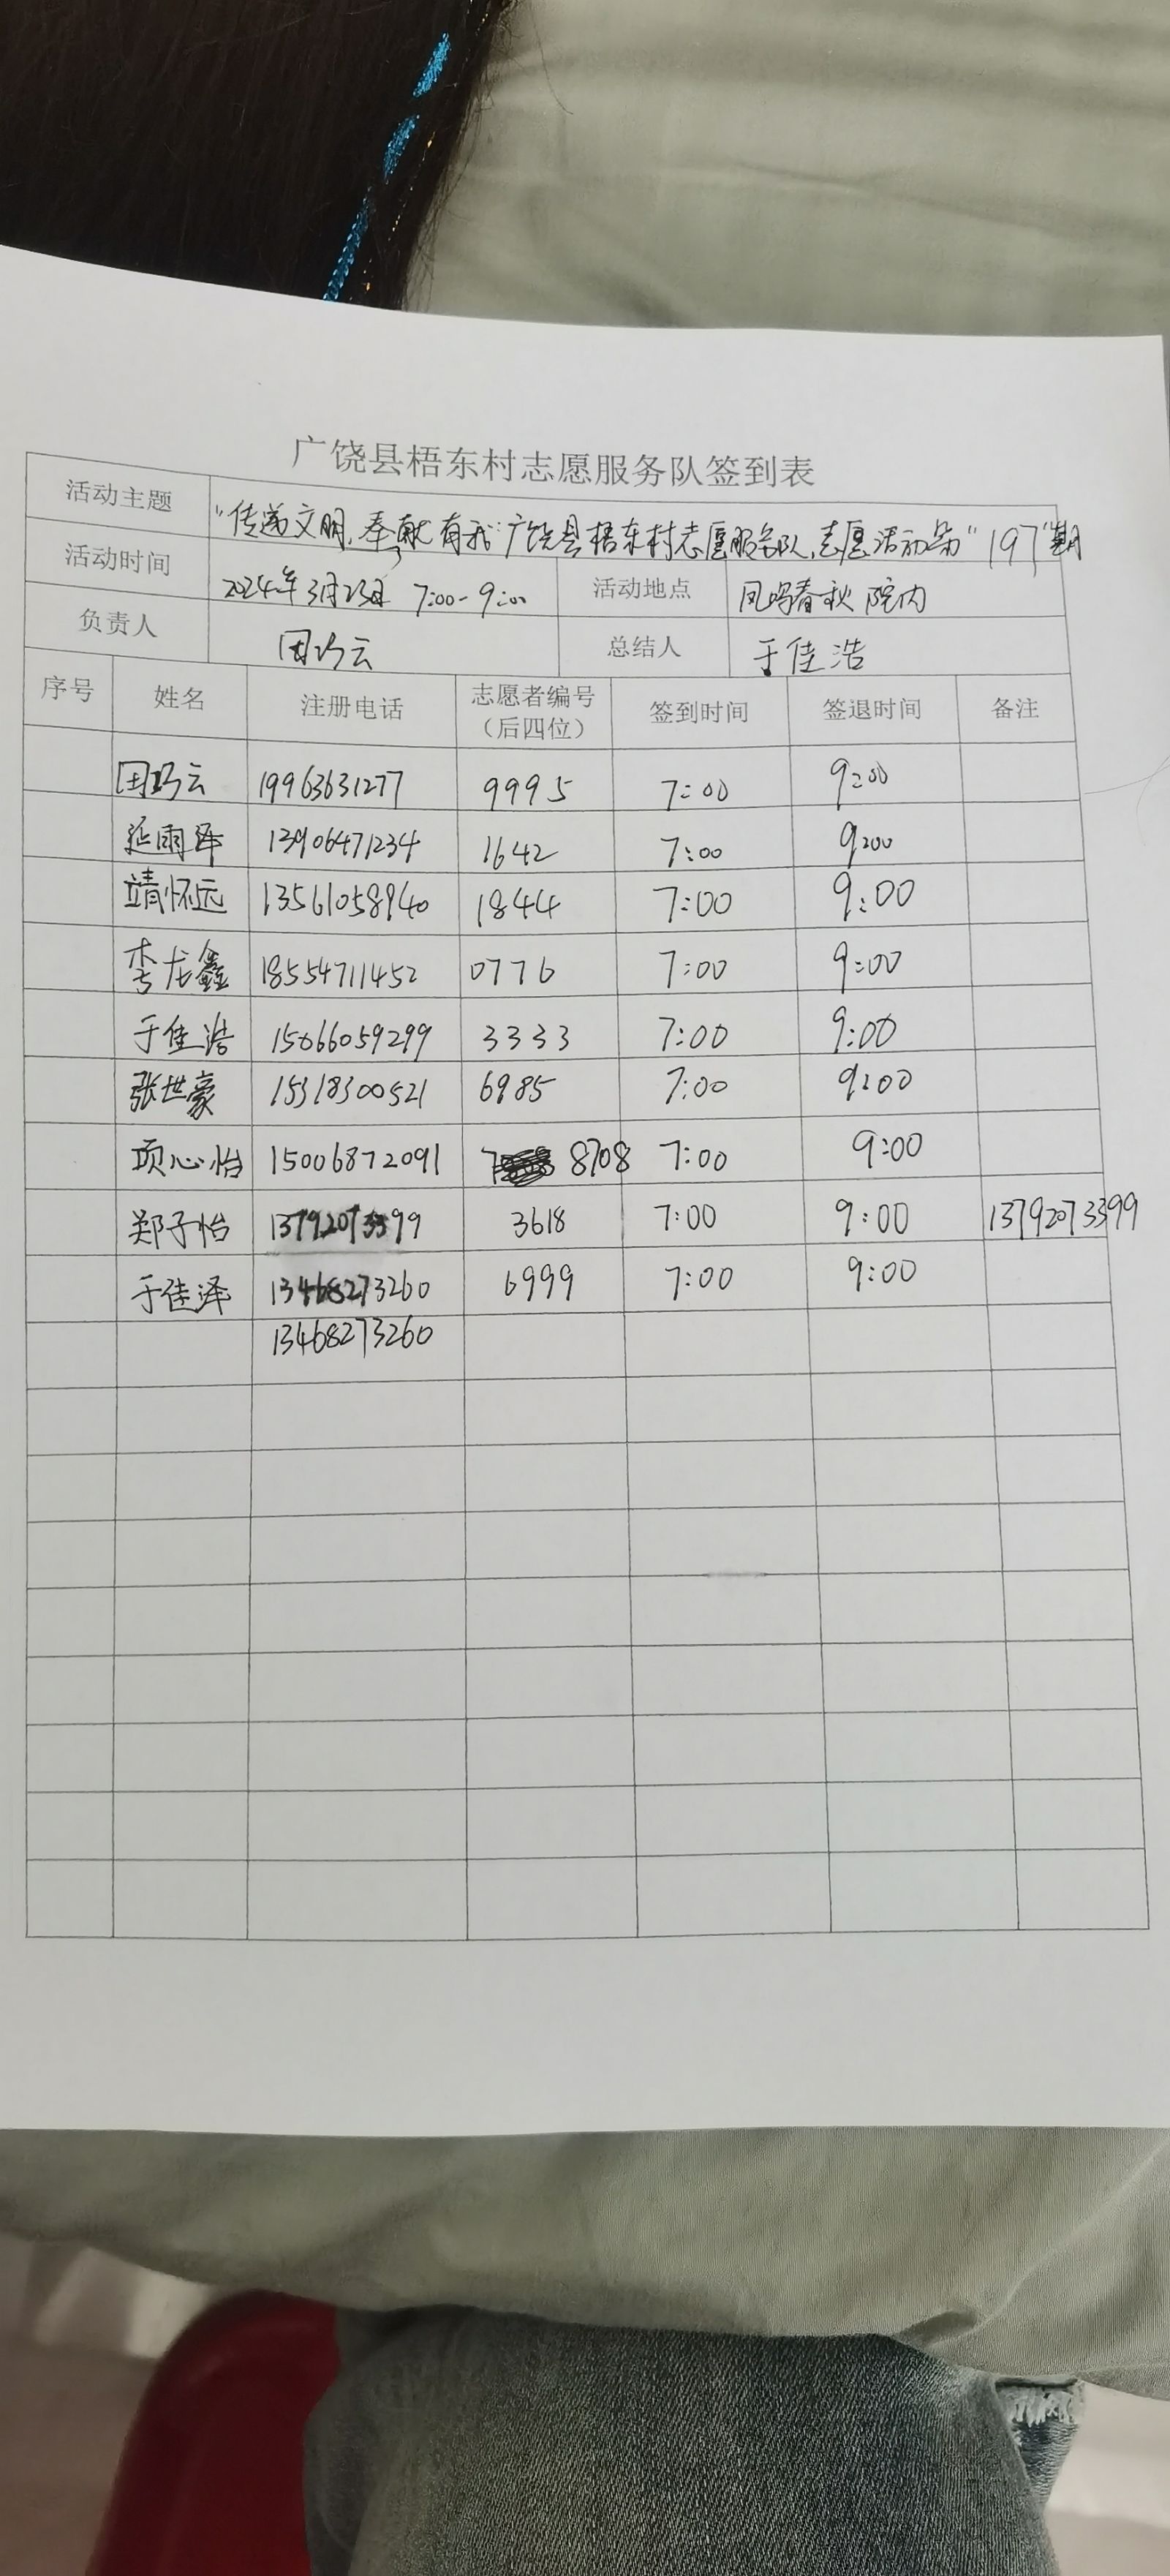 广饶县梧东村志愿服务队签到表
活动主题 "传递文明,奉献有我"广饶县梧东村志愿服务队,志愿活动第"197"期
活动时间 2024年3月23日 7:00-9:00 活动地点 凤鸣春秋院内
负责人 田巧云 总结人 于佳浩
序号 姓名 注册电话 志愿者编号(后四位) 签到时间 签退时间 备注
田巧云 19963631277 9995 7:00 9:00
延雨泽 13906471234 1642 7:00 9:00
靖怀远 13561058940 1844 7:00 9:00
李龙鑫 18554711452 0776 7:00 9:00
于佳浩 15066059299 3333 7:00 9:00
张世豪 15318300521 6985 7:00 9:00
项心怡 15006872091 8708 7:00 9:00
郑子怡 13792073399 3618 7:00 9:00 13792073399
于佳泽 13468273260 6999 7:00 9:00
13468273260